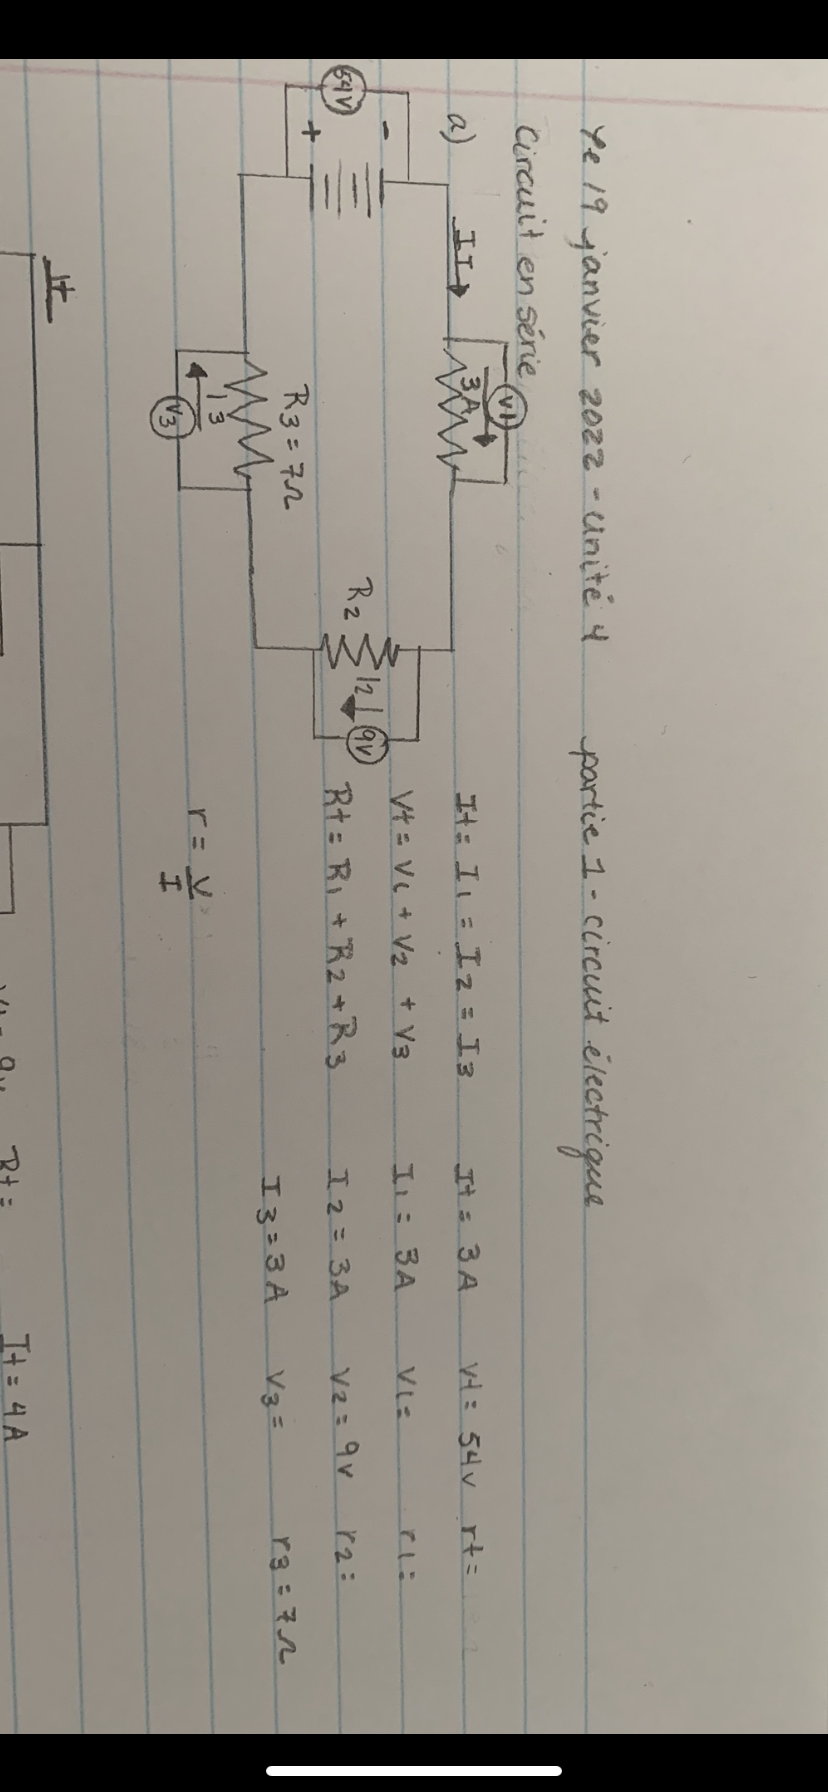 Ye 19 janvier 2022 - Unité 4 partie 1 - circuit électrique
Circuit en série
a)
II
V1
3A
54V
-
+
R2
I2
9V
R3 = 7Ω
I3
V3
It = I1 = I2 = I3
Vt = V1 + V2 + V3
Rt = R1 + R2 + R3
r = V
I
It = 3A Vt = 54v rt =
I1 = 3A V1 = r1 =
I2 = 3A V2 = 9v r2 =
I3 = 3A V3 = r3 = 7Ω
It
9v Rt = It = 4A